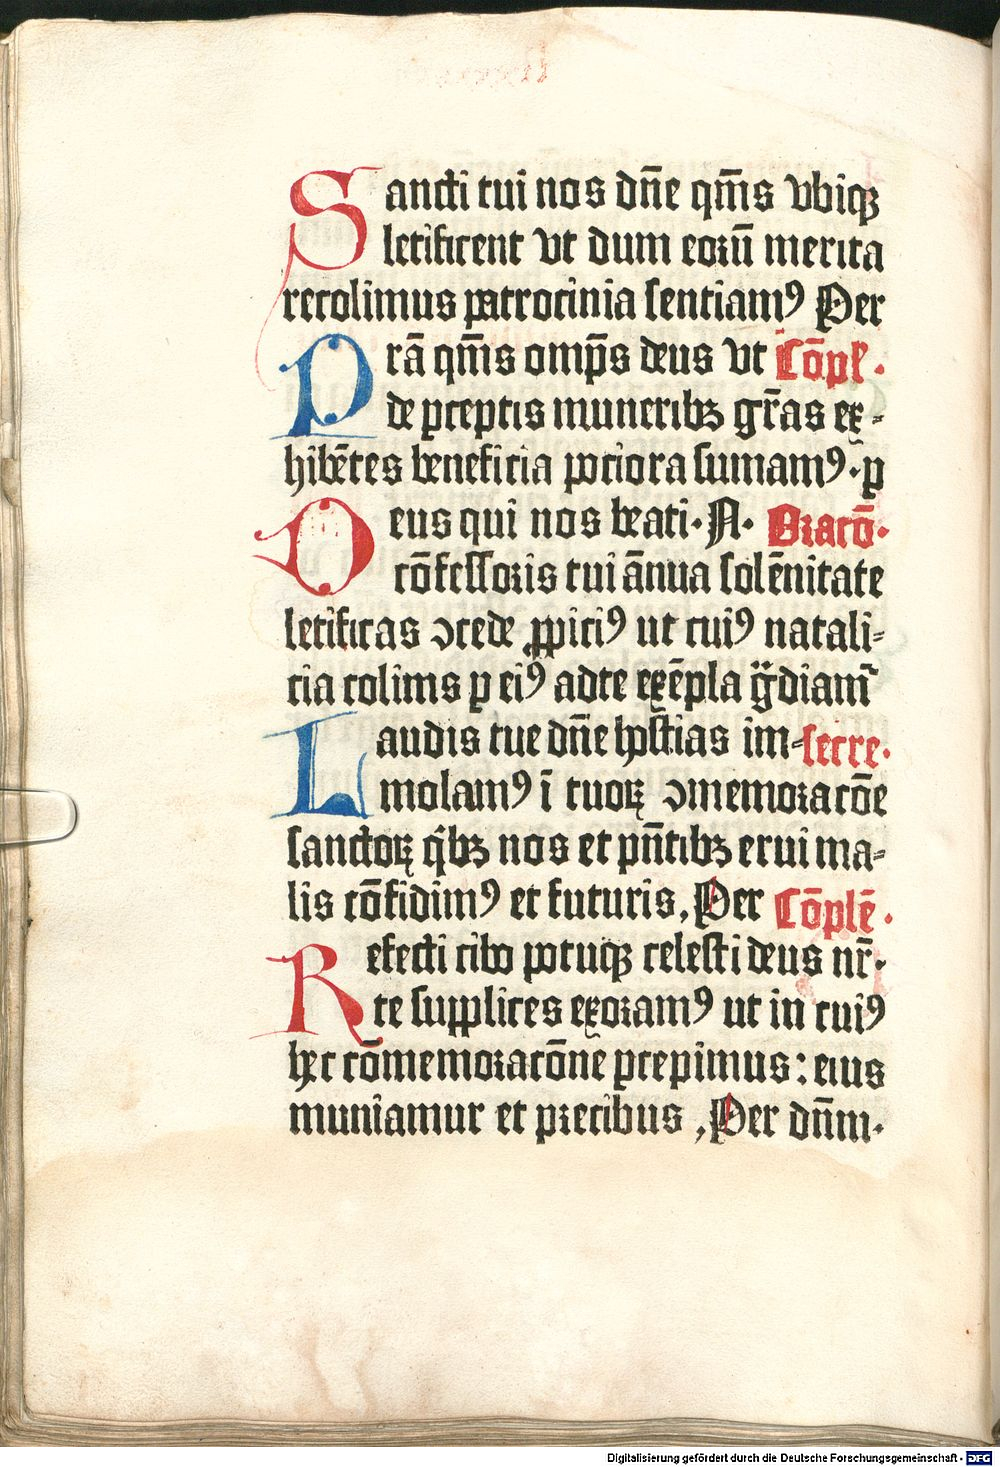 Sancti tui nos dn̄e qm̄s vbiqꝫ
letificent vt dum eoꝛū merita
recolimus patrocinia sentiamꝰ Per
Prā qm̄s omp̄s deus vt Cōpł.
de ꝑceptis muneribꝫ gr̄as ex-
hibētes beneficia pociora sumamꝰ. ꝑ
Deus qui nos beati. N. Oꝛacō.
cōfessoꝛis tui ānua solēnitate
letificas ꝯcede ꝓpiciꝰ ut cuiꝰ natali-
cia colimꝰ ꝑ eiꝰ ad te exēpla gͣdiamͬ
Laudis tue dn̄e hostias im- secre.
molamꝰ ī tuoꝝ ꝯmemoꝛacōe
sanctoꝝ qͥbꝫ nos et pn̄tibꝫ erui ma-
lis cōfidimꝰ et futuris, Per Cōplē.
Refecti cibo potuqꝫ celesti deus nr̄.
te supplices exoꝛamꝰ ut in cuiꝰ
hec cōmemoꝛacōne ꝑcepimus: eius
muniamur et pꝛecibus, Per dn̄m.
Digitalisierung gefördert durch die Deutsche Forschungsgemeinschaft - DFG